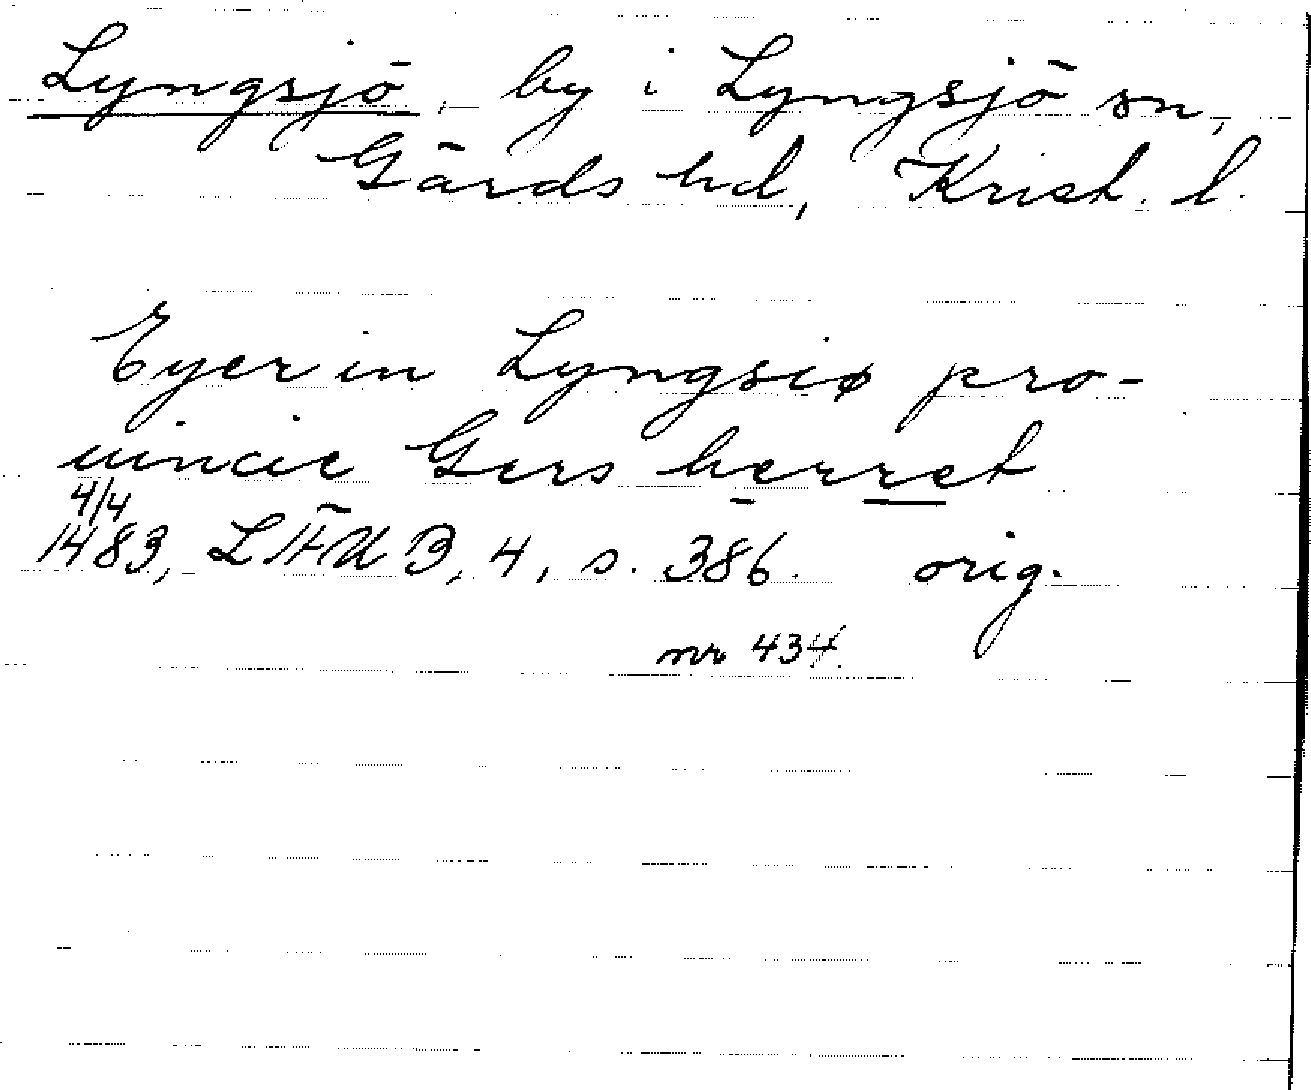 Lyngsjö, by i Lyngsjö sn,
Gärds hd, Krist. l.
Eyer in Lyngsiø pro-
uincie Gers herret
4/4
1483, LÄUB, 4, s. 386. orig.
nr 434.